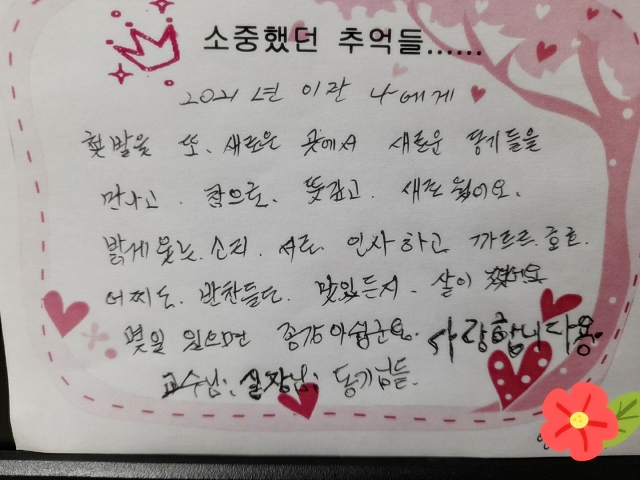 소중했던 추억들......
2021년 이란 나에게
첫발을 또. 새로운 곳에서 새로운 동기들을
만나고. 참으로. 뜻깊고. 새로웠어요.
밝게 웃는. 소리. 서로 인사하고 까르르. 호호.
어찌도. 반찬들도. 맛있든지. 살이 쪘어요
몇일 있으면 종강 아쉽군요. 사랑합니다용
교수님: 실장님: 동기님들.